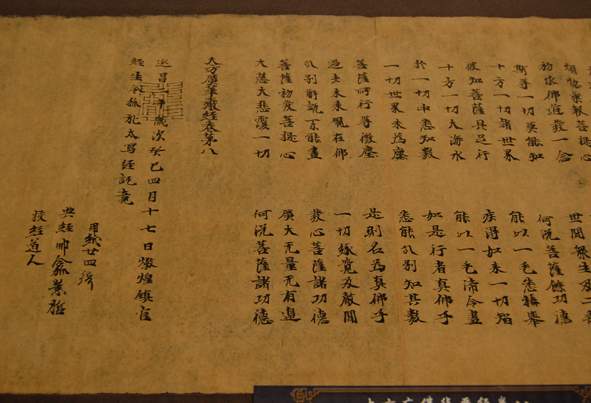 斯等一切莫能知　何況菩薩餘功德
十方一切諸世界　能以一毛悉稱舉
彼知菩薩具足行　疾得如來一切
十方一切大海水　能以一毛渧令盡
於一切中悉知數　如是行者真佛子
一切世界末為塵　悉能分別知其數
菩薩所行等微塵　是則名為真佛子
過去未來現在佛　一切緣覺及聲聞
分別解說不能盡　發心菩薩諸功德
菩薩初發菩提心　廣大无量无有邊
大慈大悲覆一切　何況菩薩諸功德
大方廣華嚴經卷第八
延昌二年歲次癸巳四月十七日燉煌鎮官
經生令狐禮太寫經訖竟
用紙廿四張
典經師令狐崇哲
校經道人